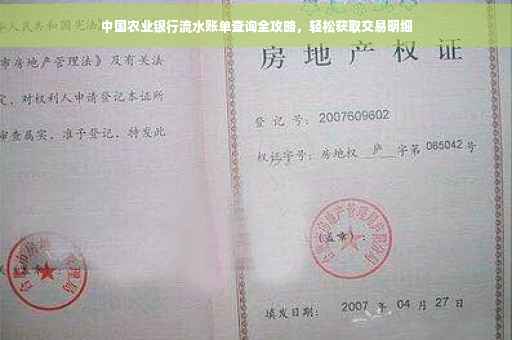 中国农业银行流水账单查询全攻略，轻松获取交易明细
人民共和国宪法
市房地产管理法》及有关法
定，对权利人申请登记本证所
审查属实，准予登记，特发此
房地产权证
登记号：2007609602
权证字号：房地权 庐 字第 065042 号
(盖章)：
填发日期：2007 年 04 月 27 日